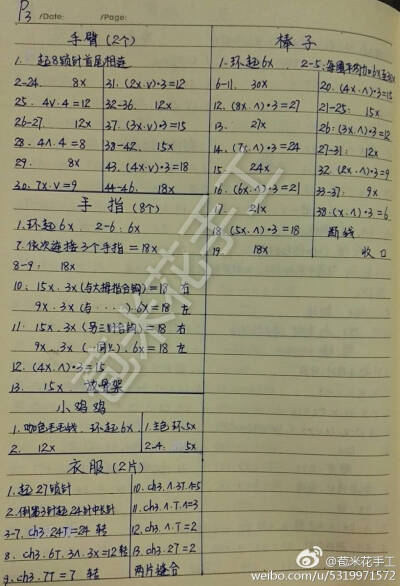 P3 /Date: /Page:
手臂(2个)
1. 起8锁针首尾相连
2-24. 8x
25. 4V.4=12
26-27. 12x
28. 4Λ.4=8
29. 8x
30. 7x.V=9
31. (2x.V)*3=12
32-36. 12x
37. (3x.V)*3=15
38-42. 15x
43. (4x.V)*3=18
44-46. 18x
手指(8个)
1. 环起6x 2-6: 6x
7. 依次连接3个手指=18x
8-9: 18x
10: 15x.3x(与大拇指合钩)=18 右
9x.3x(与····).6x=18 左
11: 15x.3x(另三针合钩)=18 右
9x.3x(一同上).6x=18 左
12. (4x.Λ)*3=15
13. 15x 放骨架
小鸡鸡
1. 咖色毛毛线 环起6x
2. 12x
1. 主色环5x
2-4: 5x
衣服(2片)
1. 起27锁针
2. 倒第3针起24针中长针
3-7. ch3.24T=24 转
8. ch3.6T.3Λ.3x=12 转
9. ch3.7T=7 转
10. ch3.Λ.3T.1=5
11. ch3.Λ.T.1=3
12. ch3.Λ.T=2
13. ch3.2T=2
两片缝合
棒子
1. 环起6x
2-5: 每圈平均加6x至30x
6-11. 30x
12. (8x.Λ)*3=27
13. 27x
14. (7x.Λ)*3=24
15. 24x
16. (6x.Λ)*3=21
17. 21x
18. (5x.Λ)*3=18
19. 18x
20. (4x.Λ)*3=15
21-25: 15x
26: (3x.Λ)*3=12
27-31: 12x
32 (2x.Λ)*3=9
33-37: 9x
38. (x.Λ)*3=6
断线
收口
苞米花手工
@苞米花手工
weibo.com/u/5319971572